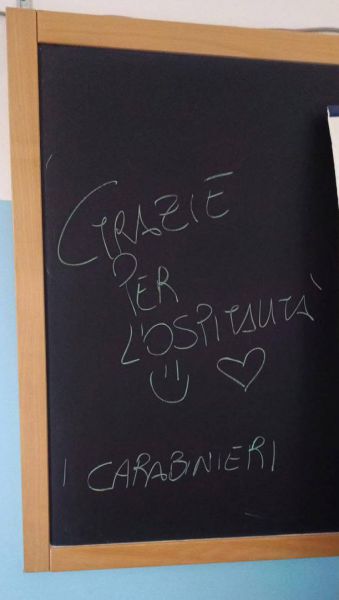 GRAZIE
PER
L'OSPITALITÀ
I CARABINIERI